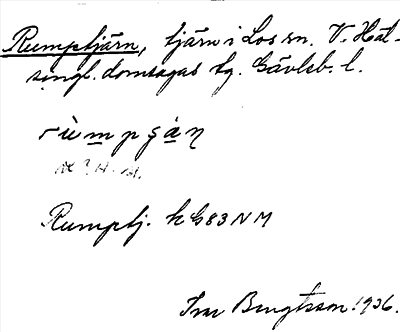 Rumptjärn, tjärn i Los sn. V. Häl-
singl. domsagas tg. Gävleb. l.
rùmpʂàn
Rumptj. k G83NM
Bengtsson 1936.